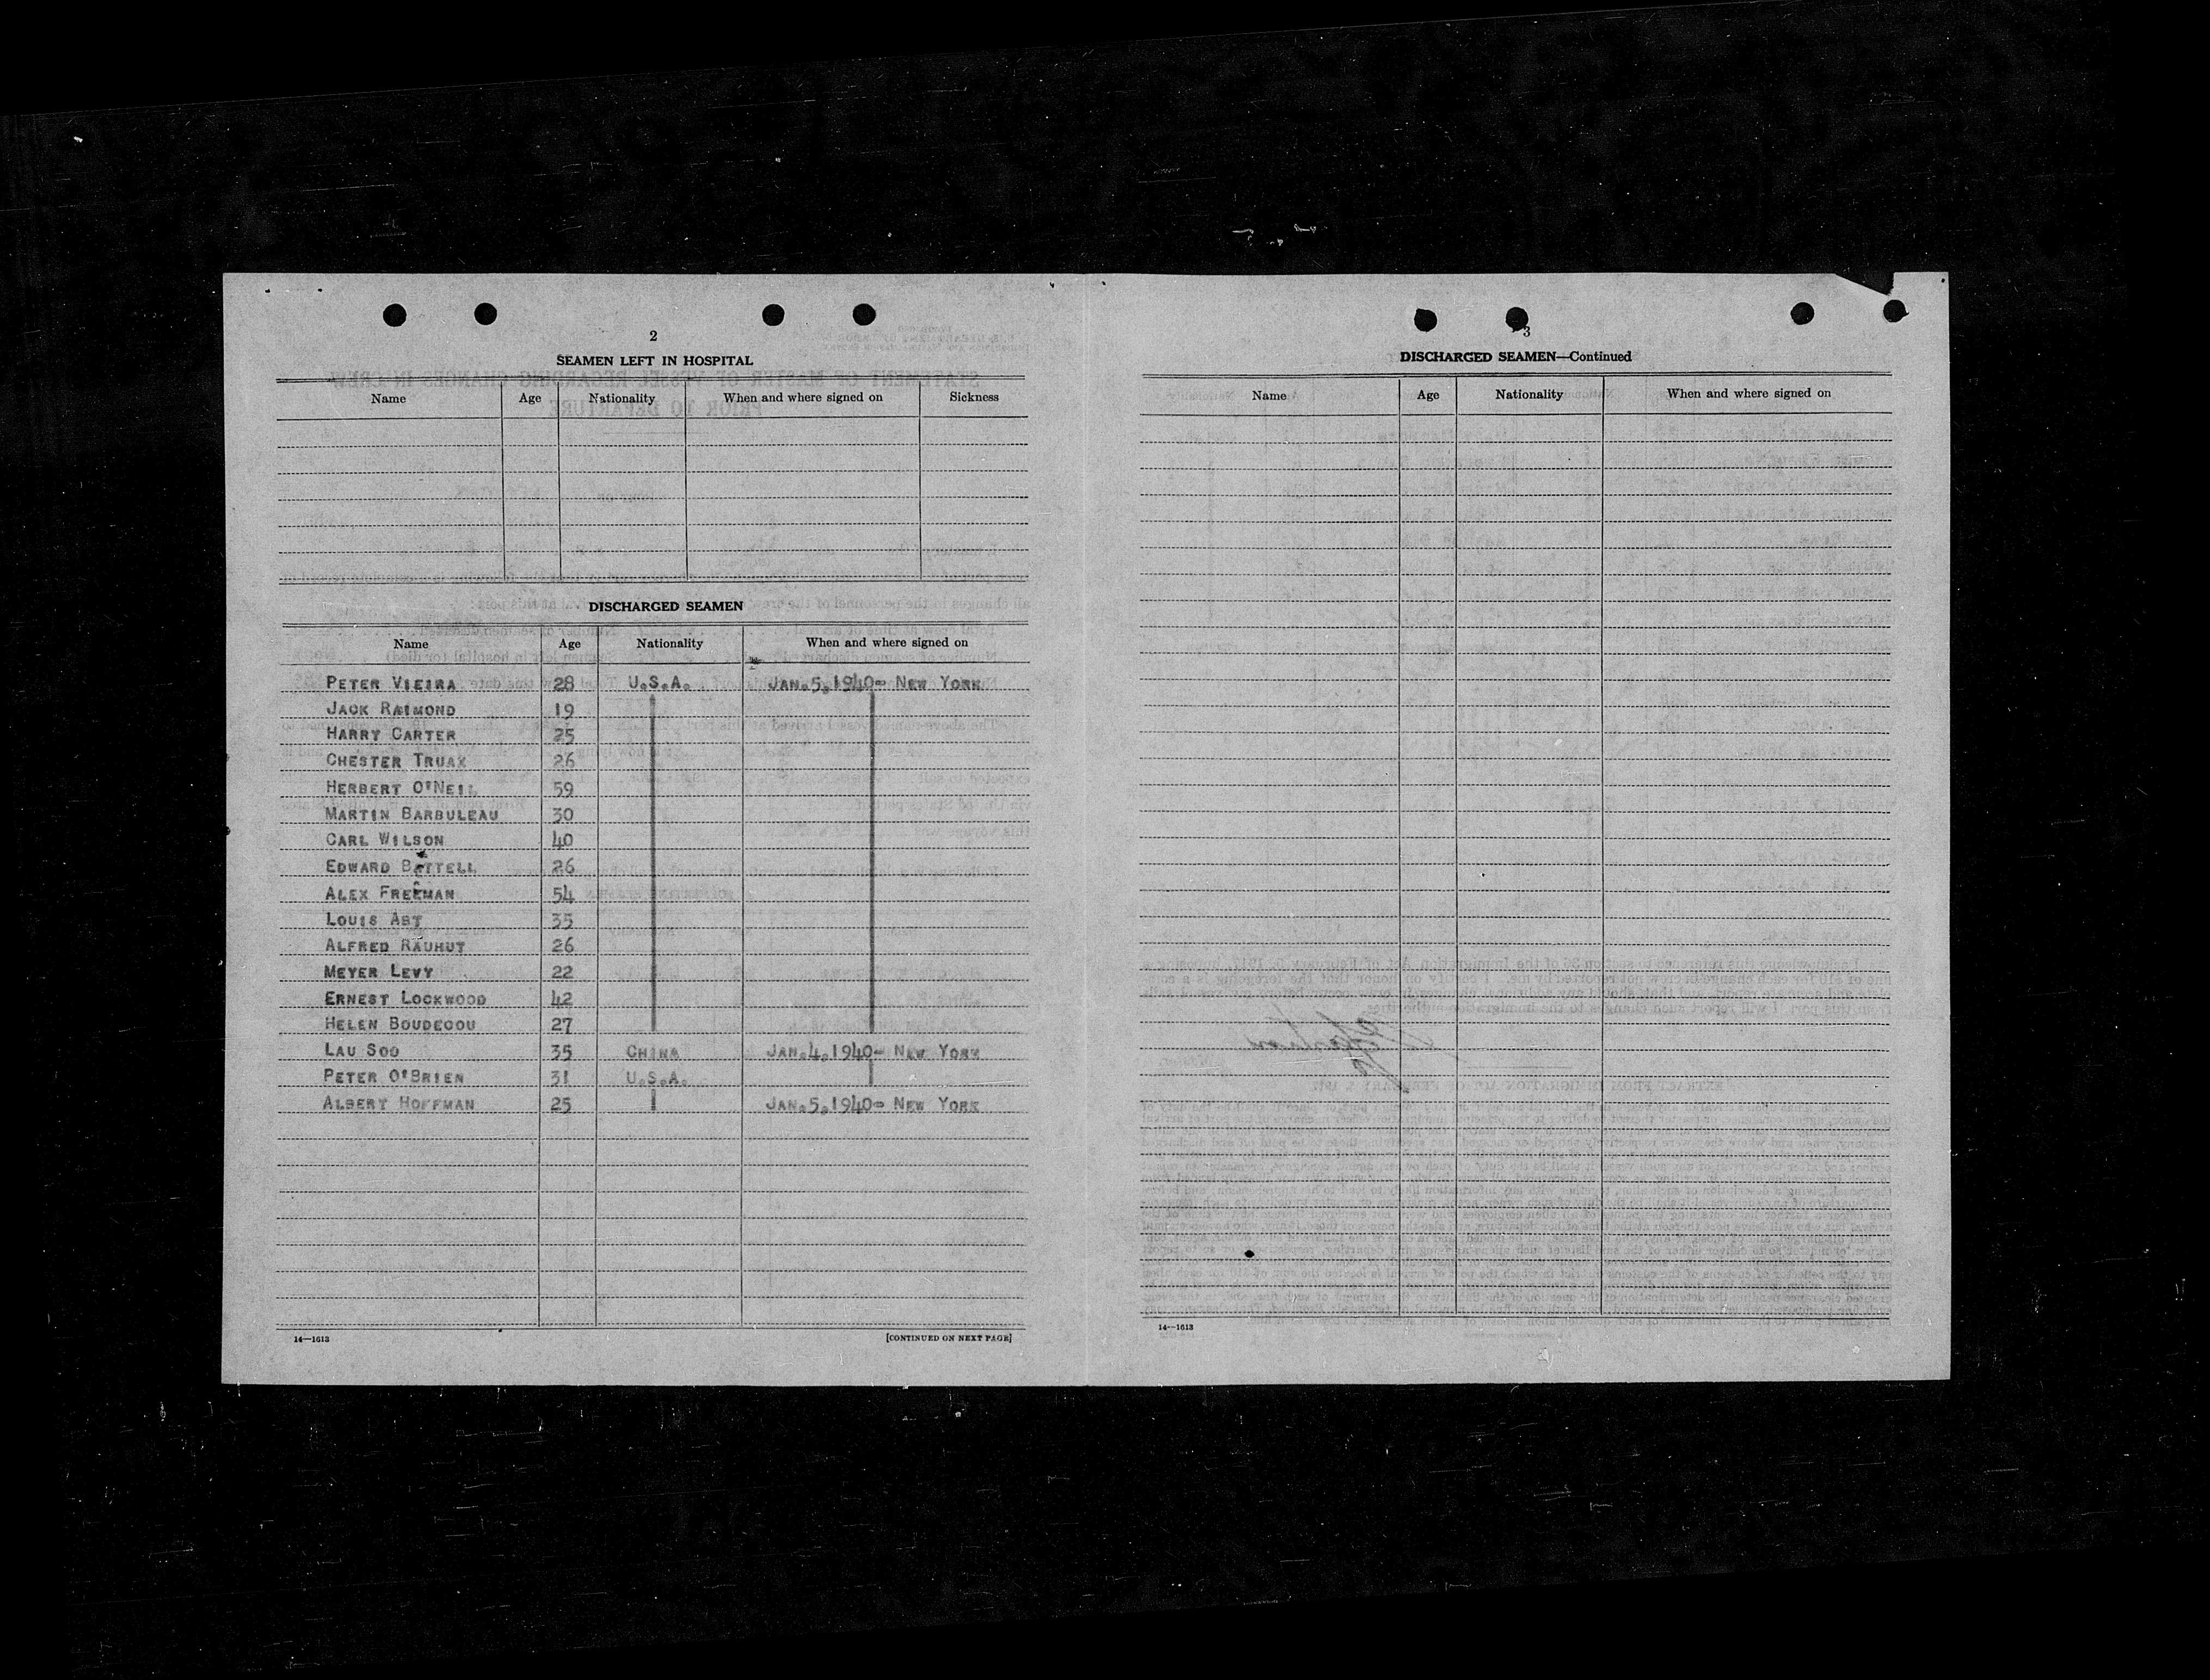 2
SEAMEN LEFT IN HOSPITAL
Name Age Nationality When and where signed on Sickness
DISCHARGED SEAMEN
Name Age Nationality When and where signed on
PETER VIEIRA 28 U.S.A. JAN.5,1940- NEW YORK
JACK RAIMOND 19
HARRY CARTER 25
CHESTER TRUAX 26
HERBERT O'NEIL 59
MARTIN BARBULEAU 30
CARL WILSON 40
EDWARD BATTELL 26
ALEX FREEMAN 54
LOUIS ABT 35
ALFRED RAUHUT 26
MEYER LEVY 22
ERNEST LOCKWOOD 42
HELEN BOUDECOU 27
LAU SOO 35 CHINA JAN.4,1940- NEW YORK
PETER O'BRIEN 31 U.S.A.
ALBERT HOFFMAN 25 JAN.5,1940- NEW YORK
14—1613 [CONTINUED ON NEXT PAGE]
3
DISCHARGED SEAMEN—Continued
Name Age Nationality When and where signed on
14—1613